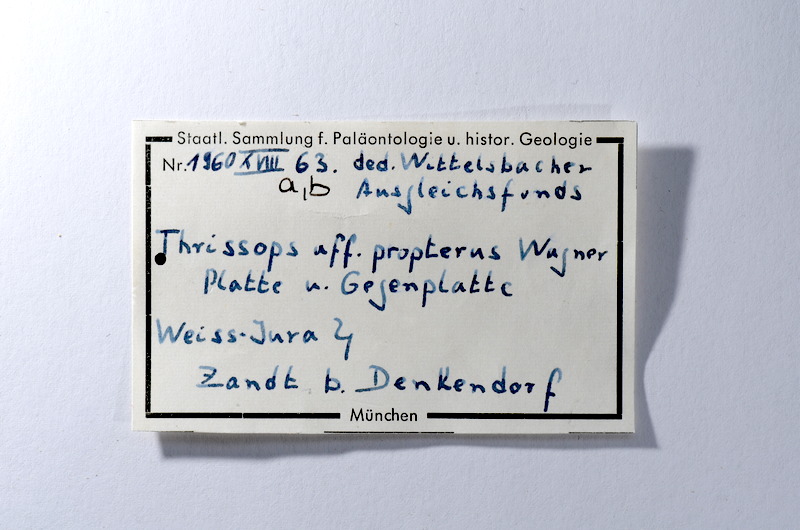 Staatl. Sammlung f. Paläontologie u. histor. Geologie
Nr. 1960 XVIII 63. ded. Wittelsbacher
a,b Ausgleichsfonds
Thrissops aff. propterus Wagner
Platte u. Gegenplatte
Weiss-Jura ζ
Zandt b. Denkendorf
München